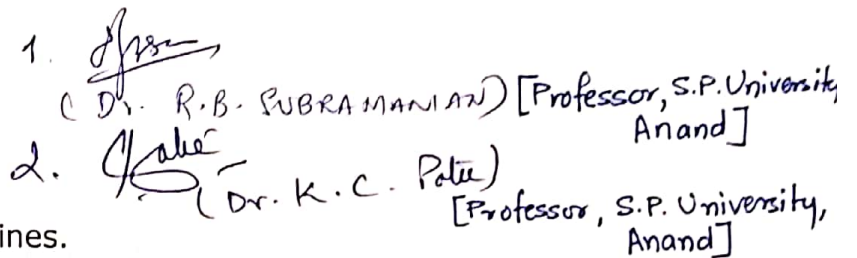 1.
(Dr. R.B. SUBRAMANIAN) [Professor, S.P. University
Anand]
2.
(Dr. K.C. Patel)
[Professor, S.P. University,
Anand]
ines.